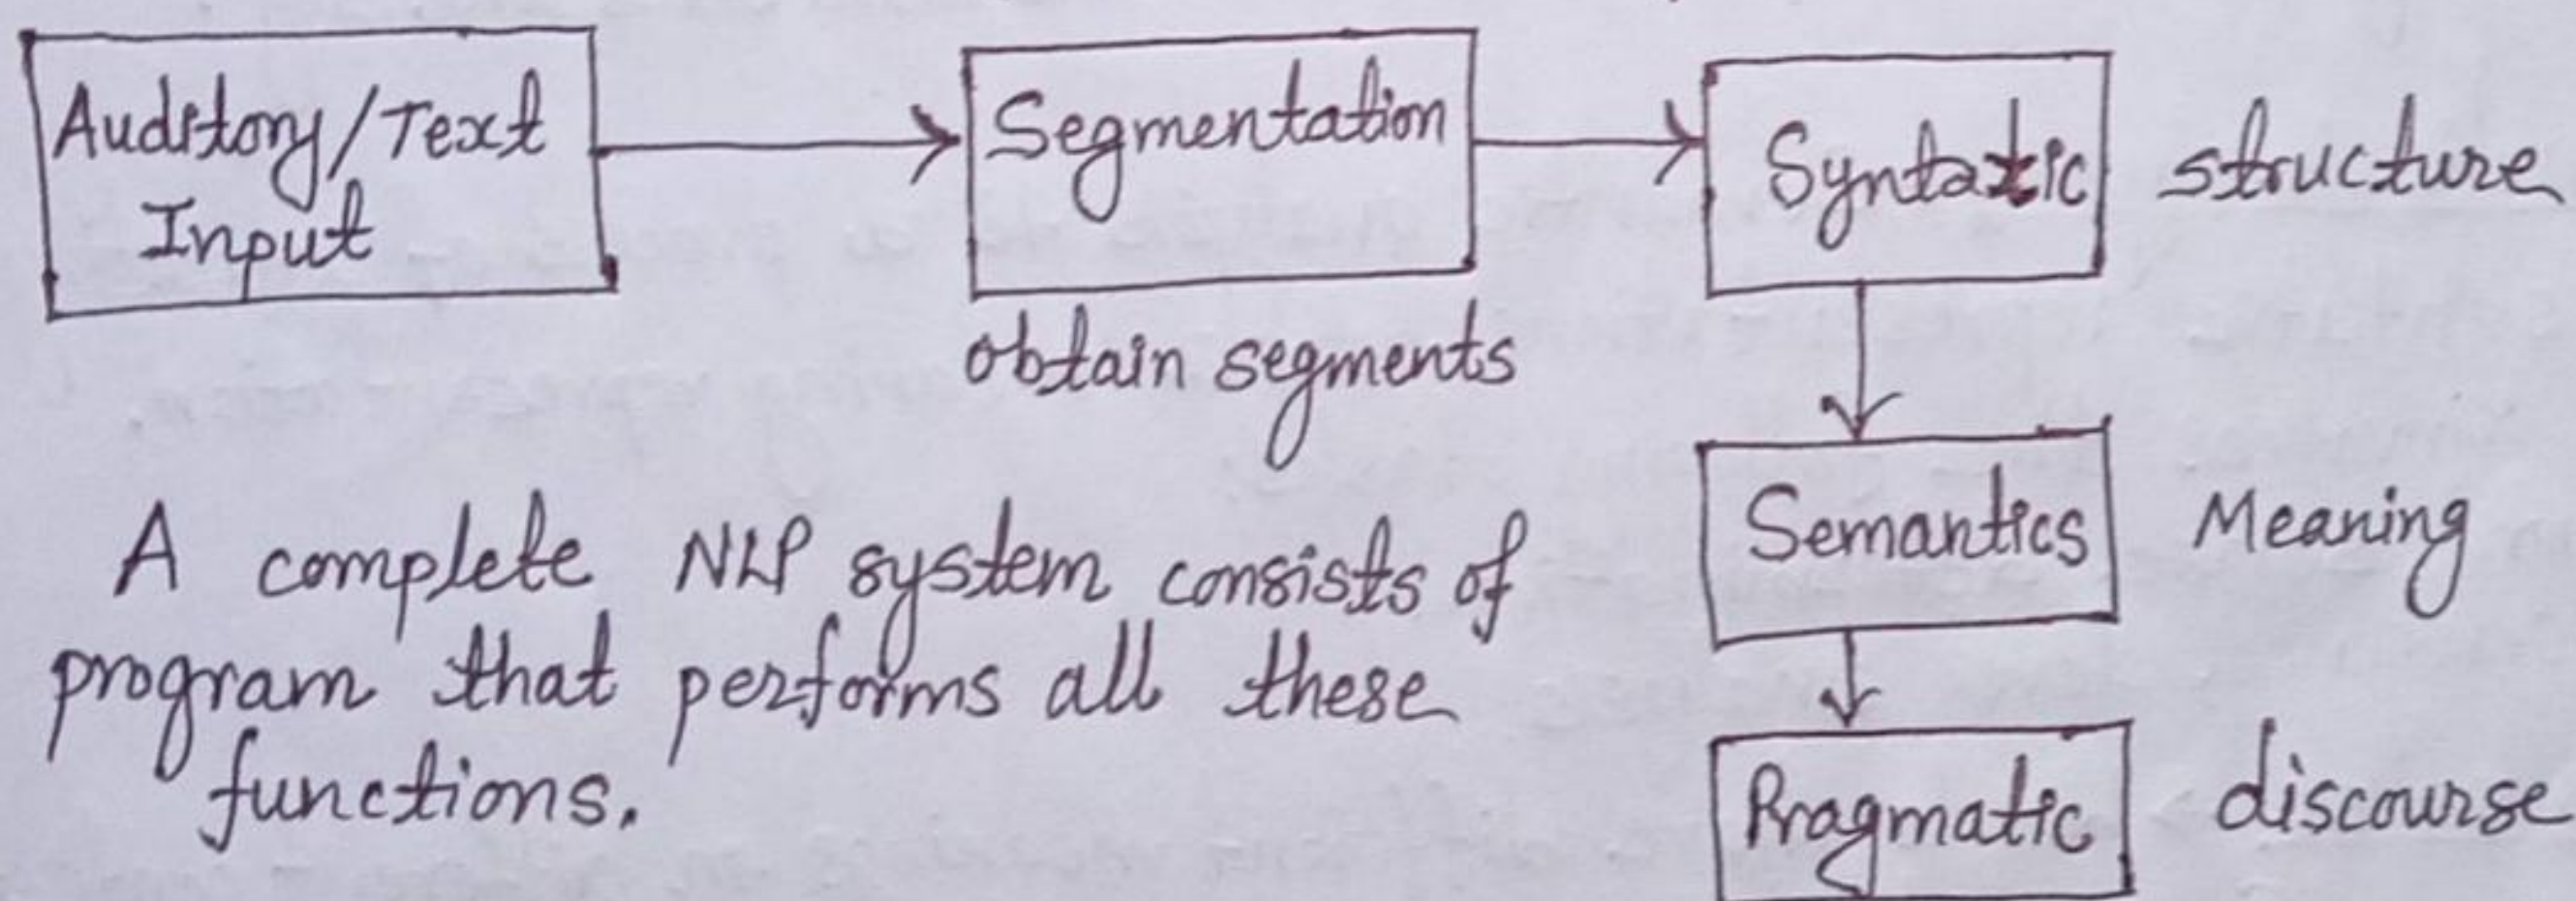 Auditory/Text
Input
Segmentation
obtain segments
Syntatic
structure
Semantics
Meaning
Pragmatic
discourse
A complete NLP system consists of
program that performs all these
functions.